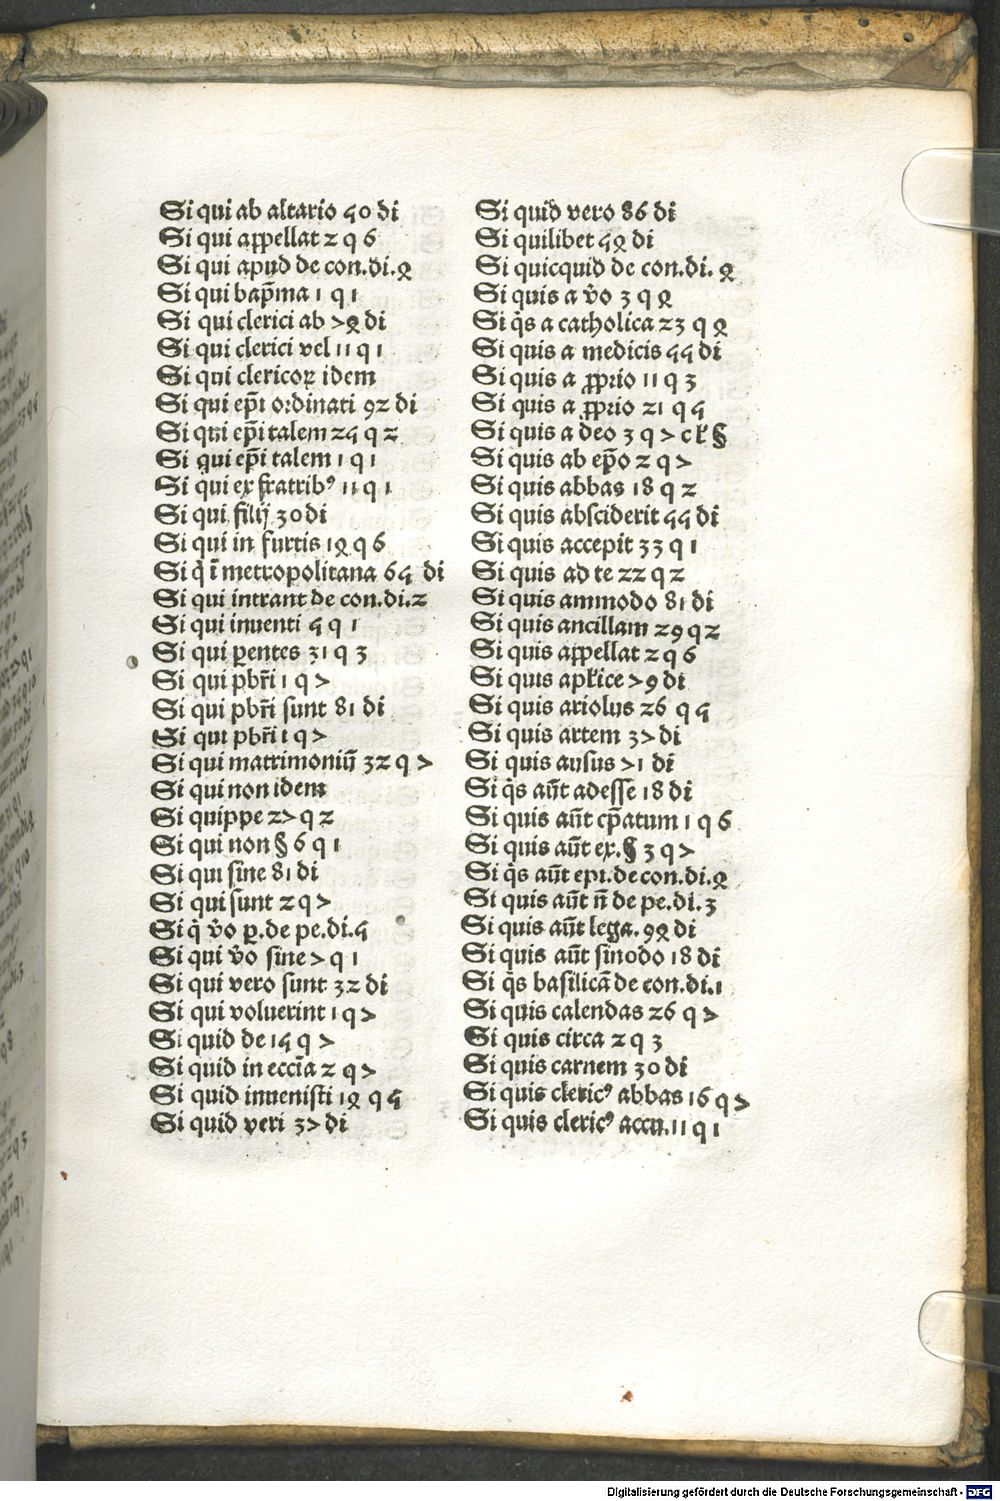 Si qui ab altario 50 di
Si qui appellat 2 q 6
Si qui apud de con.di.4
Si qui bap̄ma 1 q 1
Si qui clerici ab 74 di
Si qui clerici vel 11 q 1
Si qui clericoꝝ idem
Si qui ep̄i ordinati 92 di
Si qui ep̄i talem 25 q 2
Si qui ep̄i talem 1 q 1
Si qui ex fratribꝰ 11 q 1
Si qui filij 30 di
Si qui in furtis 14 q 6
Si q̇ ī metropolitana 65 di
Si qui intrant de con.di.2
Si qui inuenti 5 q 1
Si qui ꝑentes 31 q 3
Si qui pbr̄i 1 q 7
Si qui pbr̄i sunt 81 di
Si qui pbr̄i 1 q 7
Si qui matrimoniū 32 q 7
Si qui non idem
Si quippe 27 q 2
Si qui non § 6 q 1
Si qui sine 81 di
Si qui sunt 2 q 7
Si q̇ v̊o p.de pe.di.5
Si qui v̊o sine 7 q 1
Si qui vero sunt 32 di
Si qui voluerint 1 q 7
Si quid de 15 q 7
Si quid in ecc̄ia 2 q 7
Si quid inuenisti 14 q 5
Si quid veri 37 di
Si quid vero 86 di
Si quilibet 54 di
Si quicquid de con.di. 4
Si quis a v̊o 3 q 4
Si q̇s a catholica 23 q 4
Si quis a medicis 55 di
Si quis a ꝓprio 11 q 3
Si quis a ꝓprio 21 q 5
Si quis a deo 3 q 7 c ł §
Si quis ab ep̄o 2 q 7
Si quis abbas 18 q 2
Si quis absciderit 55 di
Si quis accepit 33 q 1
Si quis ad te 22 q 2
Si quis ammodo 81 di
Si quis ancillam 29 q 2
Si quis appellat 2 q 6
Si quis apłice 79 di
Si quis ariolus 26 q 5
Si quis artem 37 di
Si quis ausus 71 di
Si q̇s aūt adesse 18 di
Si quis aūt cp̄atum 1 q 6
Si quis aūt ex.§ 3 q 7
Si q̇s aūt epi.de con.di.4
Si quis aūt n̄ de pe.di.3
Si quis aūt lega. 94 di
Si quis aūt sinodo 18 di
Si q̇s basilicā de con.di.1
Si quis calendas 26 q 7
Si quis circa 2 q 3
Si quis carnem 30 di
Si quis clericꝰ abbas 16 q 7
Si quis clericꝰ accu.11 q 1
Digitalisierung gefördert durch die Deutsche Forschungsgemeinschaft - DFG